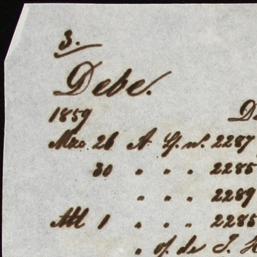 3.
Debe.
1859
Mzo. 26 A Gn. n.º 2287
30 " " " 2285
" " " 2289
Abl 1 " " " 2285
" of. de J.